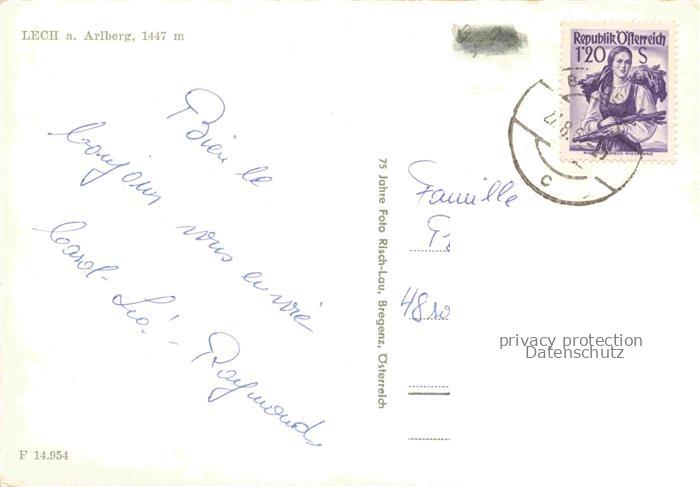 LECH a. Arlberg, 1447 m
Bien le
bonjour
vous envoie
Carol - Léo. - Raymonds
F 14.954
75 Jahre Foto Risch-Lau, Bregenz, Österreich
Republik Österreich
1'20 S
C
Famille
48
privacy protection
Datenschutz